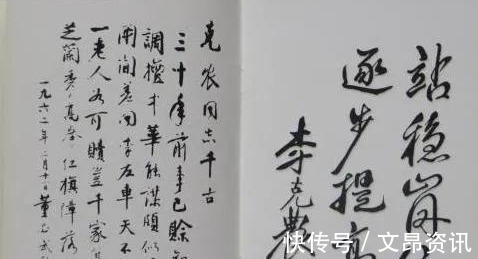 克农同志千古
三十年前事已赊
调擅才华能谋颇似
闲间羞闻李左车天不
一老人为可赎岂千家
芝兰秀高举红旗障落
一九六二年二月十日董必武
站稳
逐步提高
李克农
快传号/文昂资讯